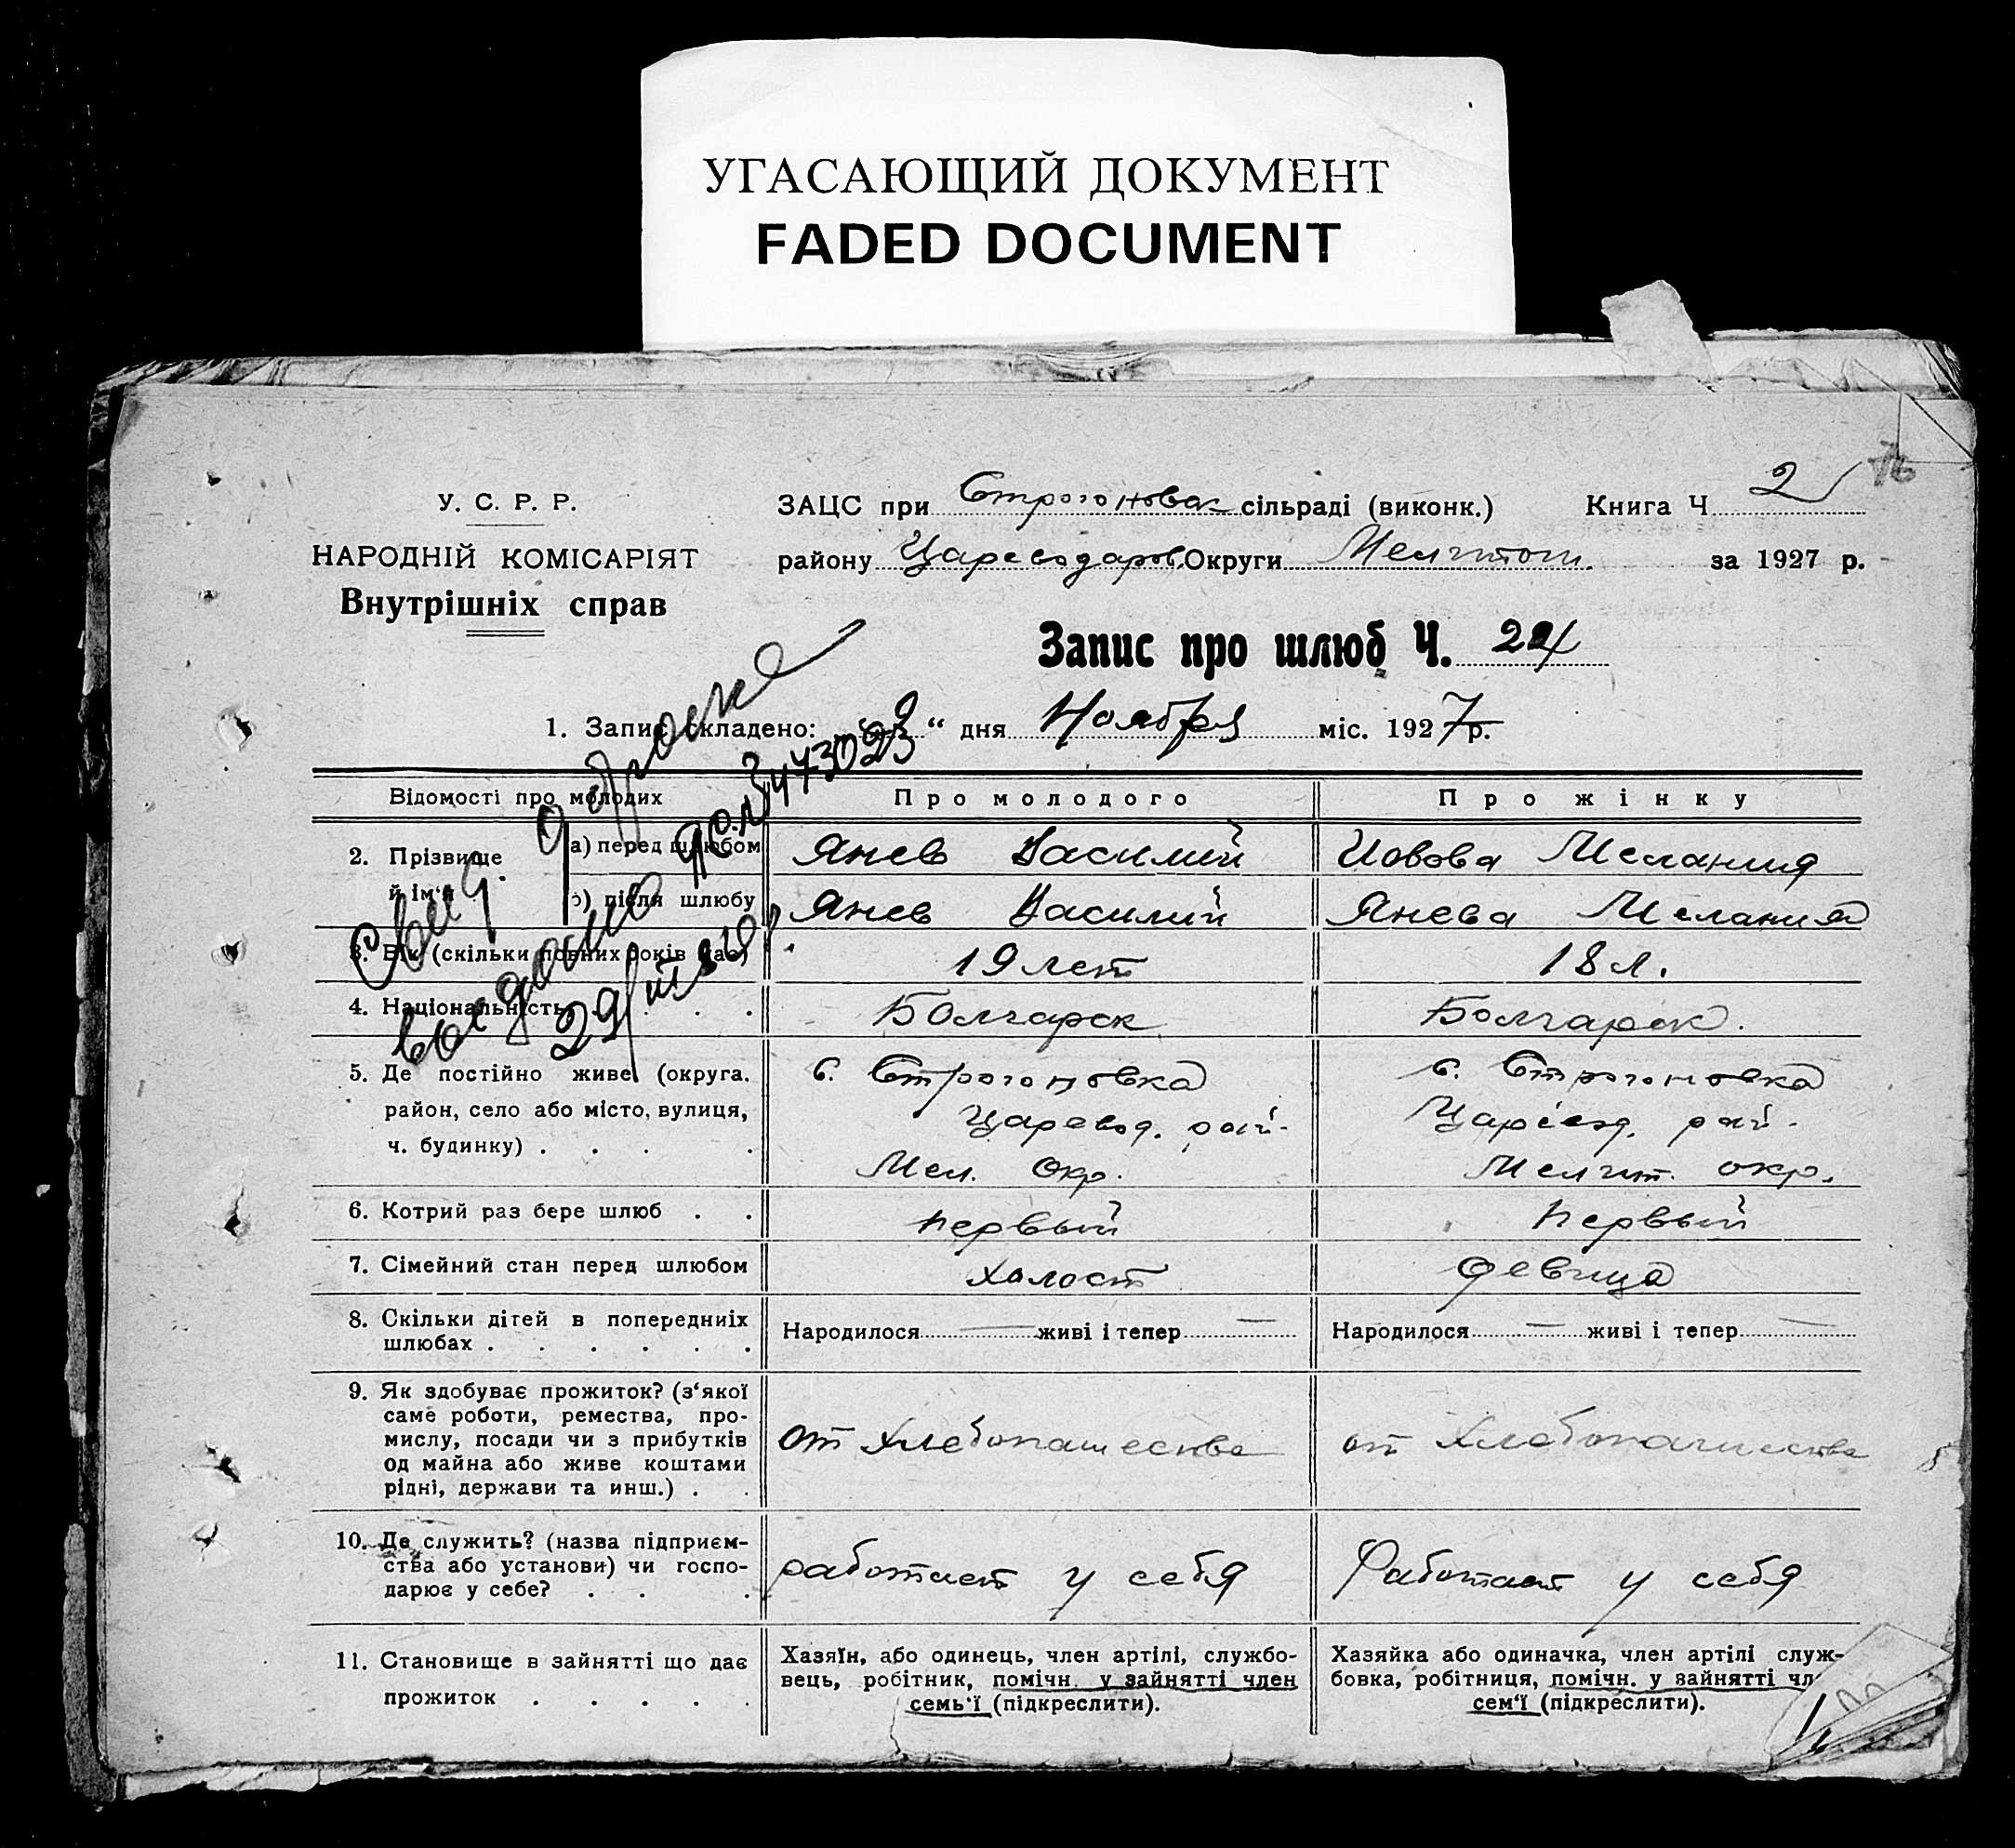 УГАСАЮЩИЙ ДОКУМЕНТ
FADED DOCUMENT
76
У. С. Р. Р.
НАРОДНІЙ КОМІСАРІЯТ
Внутрішніх справ
ЗАЦС при Строгоновск сільраді (виконк.) Книга Ч 2
району Цареводаров. Округи Мелитоп. за 1927 р.
Запис про шлюб Ч. 24
1. Запис складено: „ 9 “ дня Ноября міс. 1927 р.
Свид. о браке
восдано
29/III
Відомості про молодих
Про молодого
Про жінку
2. Прізвище й ім'я
а) перед шлюбом Янев Василий Иовова Мелания
б) після шлюбу Янев Василий Янева Мелания
3. Вік (скільки повних років має) 19 лет 18 л.
4. Національність . . . . Болгарск Болгарск.
5. Де постійно живе (округа, район, село або місто, вулиця, ч. будинку) . . . .
с. Строгоновка
Царевод. рай.
Мел. Окр.
с. Строгоновка
Царевод. рай.
Мелит. окр.
6. Котрий раз бере шлюб . . первый первый
7. Сімейний стан перед шлюбом холост девица
8. Скільки дітей в попередниіх шлюбах . . . . . .
Народилося — живі і тепер — Народилося — живі і тепер —
9. Як здобуває прожиток? (з‘якої
саме роботи, ремества, про-
мислу, посади чи з прибутків
од майна або живе коштами
рідні, держави та инш.) . .
от хлебопашества
от хлебопашества
10. Де служить? (назва підприєм-
ства або установи) чи госпо-
дарює у себе? . . .
работает у себя
Работает у себя
11. Становище в зайнятті що дає
прожиток . . . . .
Хазяїн, або одинець, член артілі, службо-
вець, робітник, помічн. у зайнятті член
семь‘ї (підкреслити).
Хазяйка або одиначка, член артілі служ-
бовка, робітниця, помічн. у зайнятті чл
сем‘ї (підкреслити).